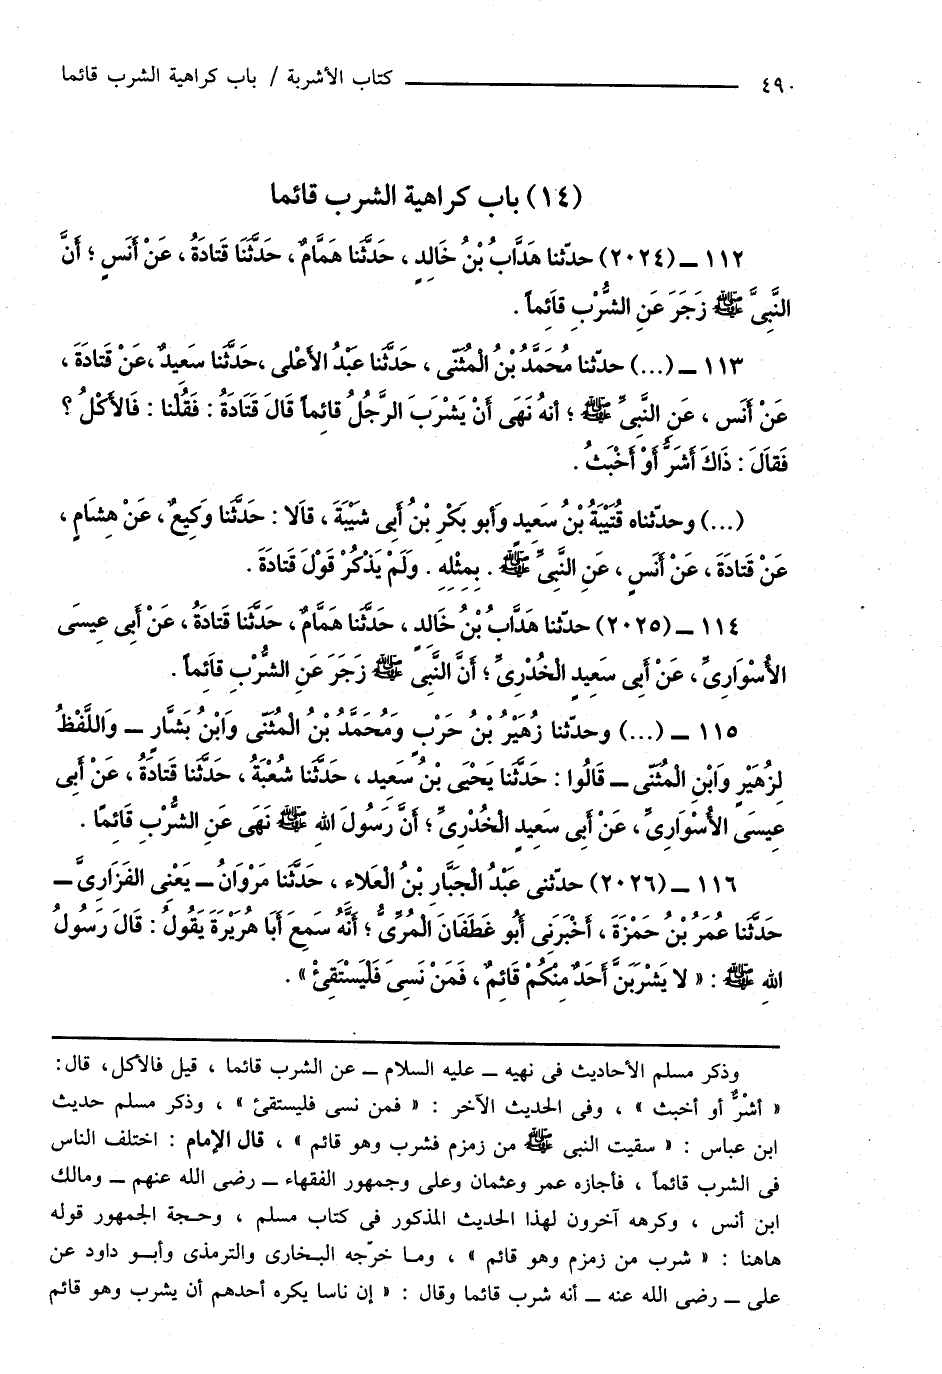 ٤٩٠ ــــــــــــــــــــ كتاب الأشربة / باب كراهية الشرب قائما
(١٤) باب كراهية الشرب قائما
١١٢ ــ (٢٠٢٤) حدّثنا هَدَّابُ بْنُ خَالِدٍ ، حَدَّثَنا هَمَّامٌ ، حَدَّثَنَا قَتَادَةُ ، عَنْ أَنَسٍ ؛ أَنَّ
النَّبِىَّ ﷺ زَجَرَ عَنِ الشُّرْبِ قَائِماً .
١١٣ ــ (...) حدّثنا مُحَمَّدُ بْنُ الْمُثَنَّى ، حَدَّثَنا عَبْدُ الأَعْلى ،حَدَّثَنا سَعِيدٌ ،عَنْ قَتَادَةَ ،
عَنْ أَنَس ، عَنِ النَّبِىِّ ﷺ ؛ أنهُ نَهَى أَنْ يَشْرَبَ الرَّجُلُ قائماً قَالَ قَتَادَةُ : فَقُلْنا : فَالأَكْلُ ؟
فَقَالَ : ذَاكَ أَشَرُّ أَوْ أَخْبَثُ .
(...) وحدّثناه قُتَيْبَةُ بْنُ سَعِيدٍ وَأَبو بَكْرِ بْنُ أَبِى شَيْبَةَ ، قَالا : حَدَّثَنا وَكِيعٌ ، عَنْ هِشَامٍ ،
عَنْ قَتَادَةَ ، عَنْ أَنَسٍ ، عَنِ النَّبِىِّ ﷺ . بِمِثْلِهِ . وَلَمْ يَذْكُرْ قَوْلَ قَتَادَةَ .
١١٤ ــ (٢٠٢٥) حدّثنا هَدَّابُ بْنُ خَالِدٍ ، حَدَّثَنا هَمَّامٌ ، حَدَّثَنا قَتَادَةُ ، عَنْ أَبِى عِيسَى
الأُسْوَارِىِّ ، عَنْ أَبِى سَعِيدٍ الْخُدْرِىِّ ؛ أَنَّ النَّبِىَّ ﷺ زَجَرَ عَنِ الشُّرْبِ قَائِماً .
١١٥ ــ (...) وحدّثنا زُهَيْرُ بْنُ حَرْبٍ وَمُحَمَّدُ بْنُ الْمُثَنَّى وَابْنُ بَشَّارٍ ــ وَاللَّفْظُ
لِزُهَيْرٍ وَابْنِ الْمُثَنَّى ــ قَالُوا : حَدَّثَنا يَحْيَى بْنُ سَعِيد ، حَدَّثَنا شُعْبَةُ ، حَدَّثَنا قَتَادَةُ ، عَنْ أَبِى
عِيسَى الأُسْوَارِىِّ ، عَنْ أَبِى سَعِيدٍ الْخُدْرِىِّ ؛ أَنَّ رَسُولَ اللهِ ﷺ نَهَى عَنِ الشُّرْبِ قَائِمًا .
١١٦ ــ (٢٠٢٦) حدّثنى عَبْدُ الْجَبَّارِ بْنُ الْعَلاء ، حَدَّثَنا مَرْوَانُ ــ يَعْنِى الفَزَارِىَّ ــ
حَدَّثَنا عُمَرُ بْنُ حَمْزَةَ ، أَخْبَرَنِى أَبُو غَطَفَانَ الْمُرِّىُّ ؛ أَنَّهُ سَمِعَ أَبَا هُرَيْرَةَ يَقُولُ : قَالَ رَسُولُ
اللهِ ﷺ : « لا يَشْرَبَنَّ أَحَدٌ مِنْكُمْ قَائِمٌ ، فَمَنْ نَسِىَ فَلْيَسْتَقِئْ » .
وذكر مسلم الأحاديث فى نهيه ــ عليه السلام ــ عن الشرب قائما ، قيل فالأكل، قال:
« أشرٌّ أو أخبث » ، وفى الحديث الآخر : « فمن نسى فليستقئ » ، وذكر مسلم حديث
ابن عباس : « سقيت النبى ﷺ من زمزم فشرب وهو قائم » ، قال الإمام : اختلف الناس
فى الشرب قائماً ، فأجازه عمر وعثمان وعلى وجمهور الفقهاء ــ رضى الله عنهم ــ ومالك
ابن أنس ، وكرهه آخرون لهذا الحديث المذكور فى كتاب مسلم ، وحجة الجمهور قوله
هاهنا : « شرب من زمزم وهو قائم » ، وما خرّجه البخارى والترمذى وأبو داود عن
على ــ رضى الله عنه ــ أنه شرب قائما وقال : « إن ناسا يكره أحدهم أن يشرب وهو قائم